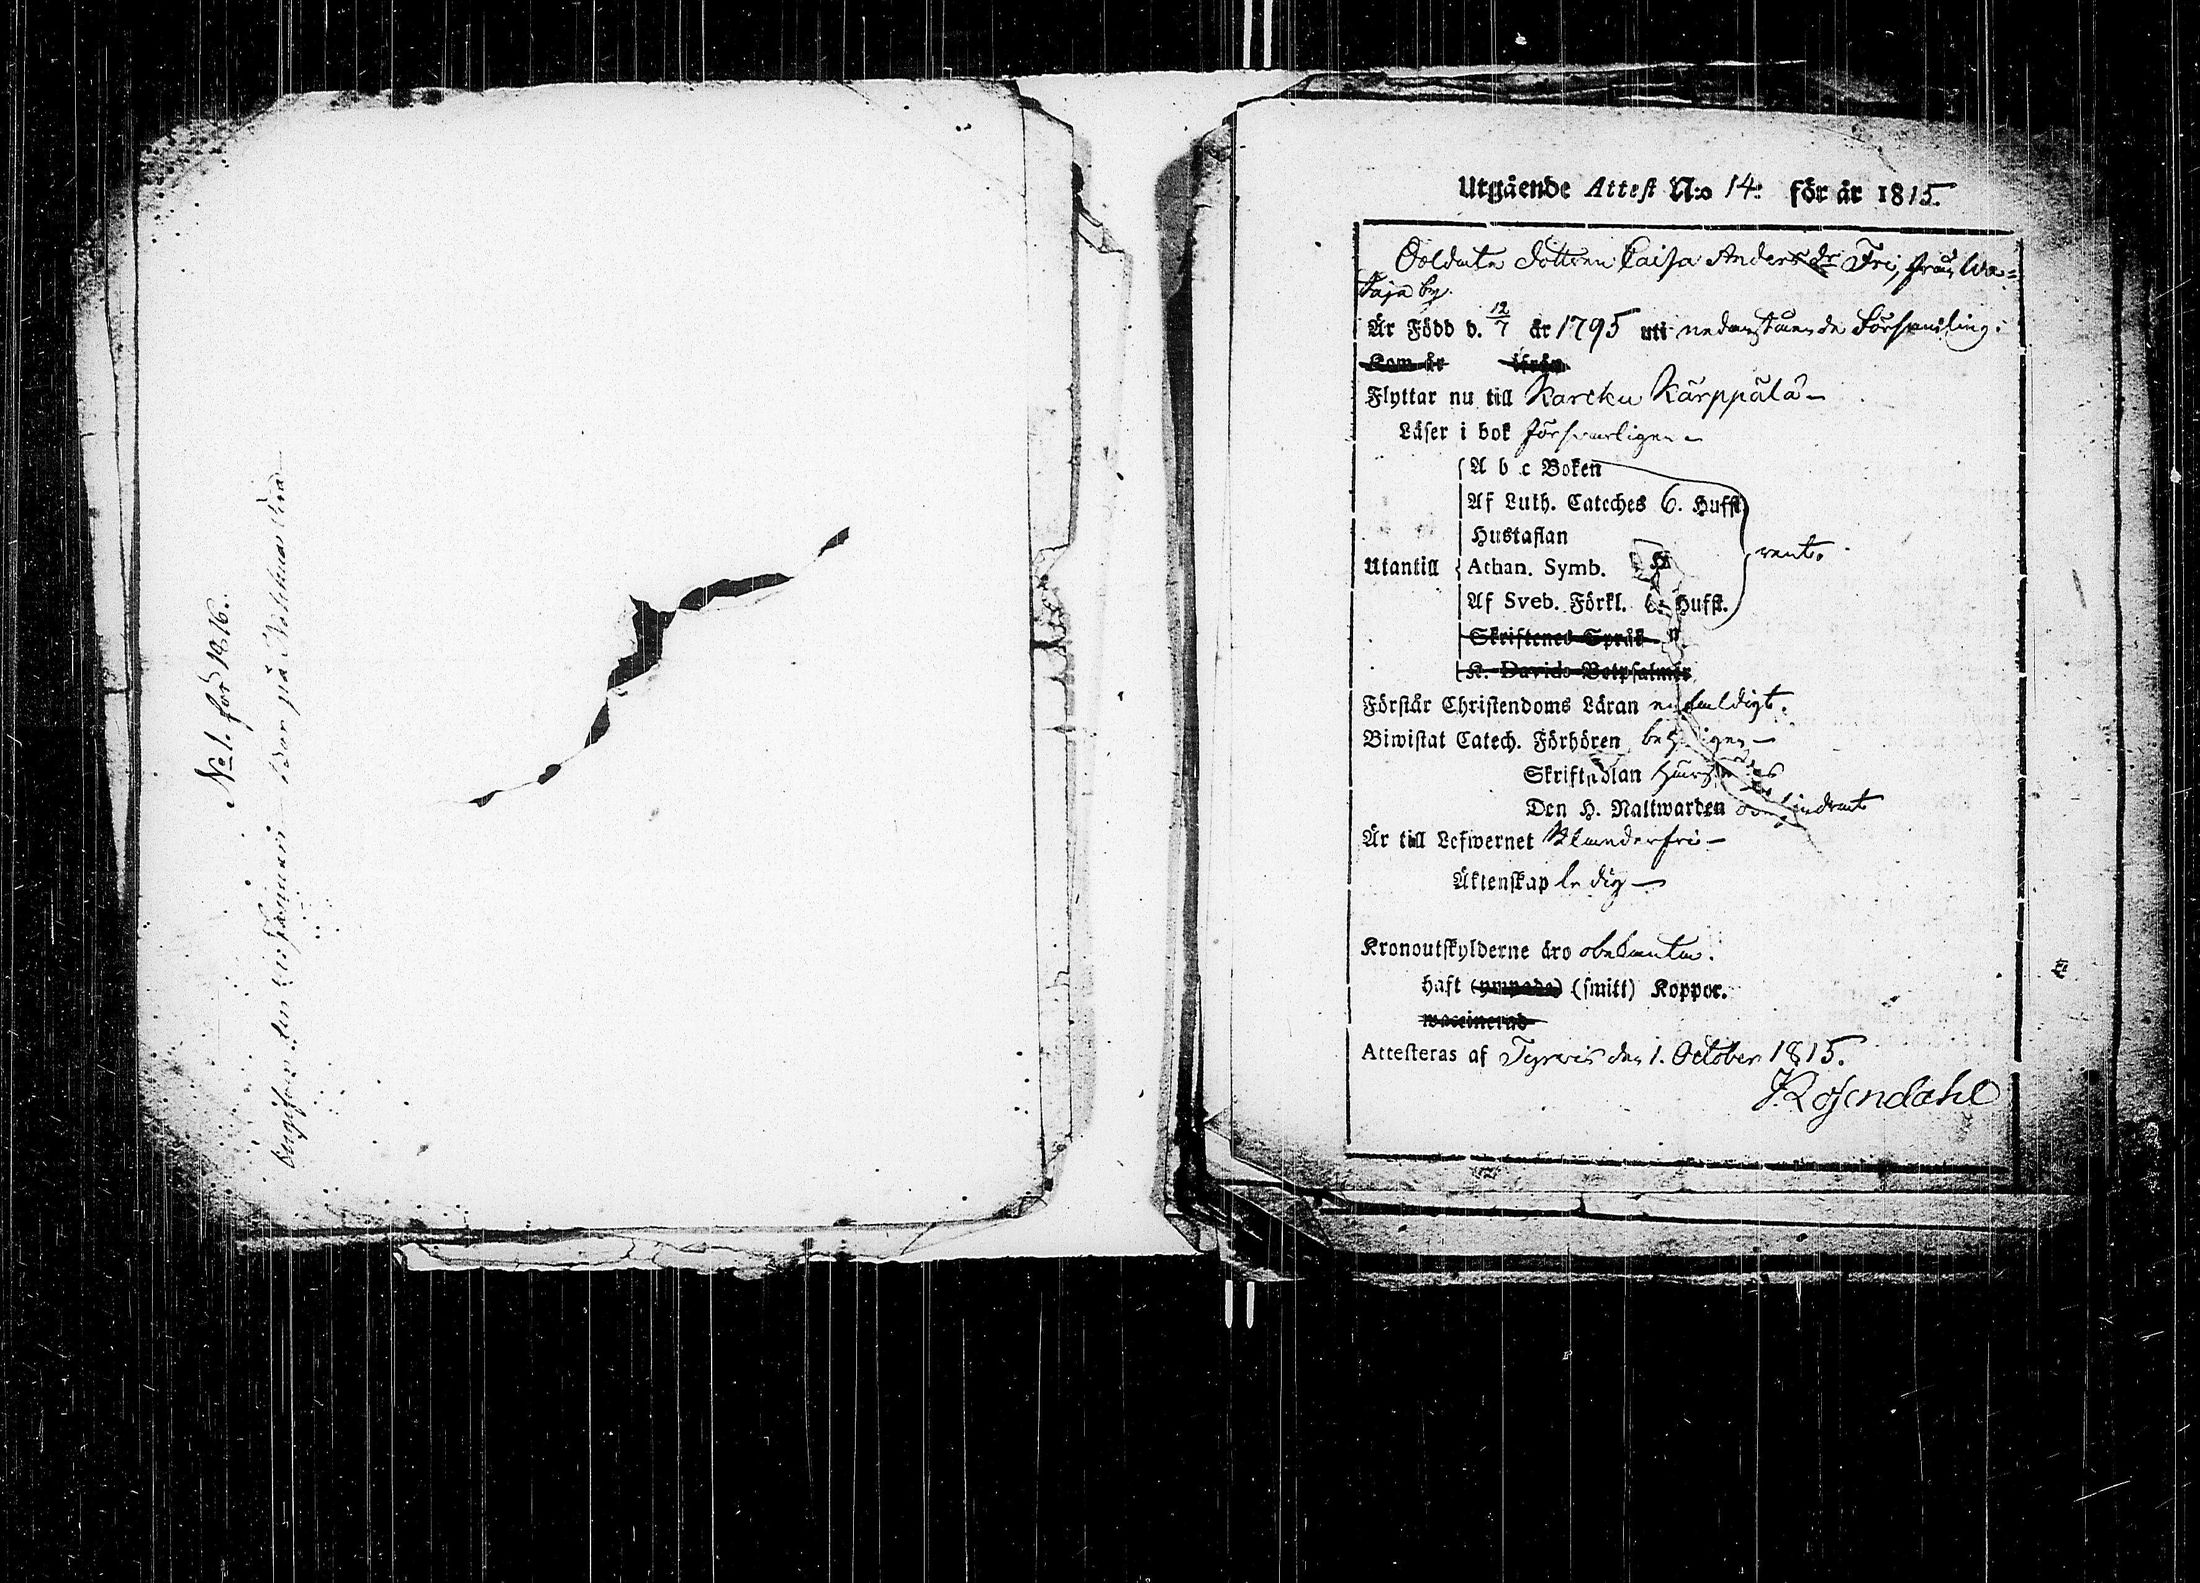 No 1. för 1816.
på
Utgående Attest N:o 14: för år 1815.
Soldate dottren Caisa Andersdr Fri, från Wa=
taja by.
Är Född d. 12/7 år 1795 uti nedanstående Församling.
Kom år ifrån
Flyttar nu till Karcku Kärppälä
Läser i bok försvarligen
A b c Boken
Af Luth. Cateches 6. Hufst.
Hustaflan
Utantill Athan. Symb.
rent.
Af Sveb. Förkl. 6. Hufst.
Skriftenes Språk
K. Davids Botpsalmer
Förstår Christendoms Läran enfaldigt.
Biwistat Catech. Förhören
Skriftadlan
Den H. Nattwarden obehindrat
Är till Lefwernet klanderfri
Äktenskap ledig
Kronoutskylderne äro obekanta.
haft (ympade) (smitt) Koppor.
waccinerad
Attesteras af Tyrvis den 1. October 1815.
J. Rosendahl